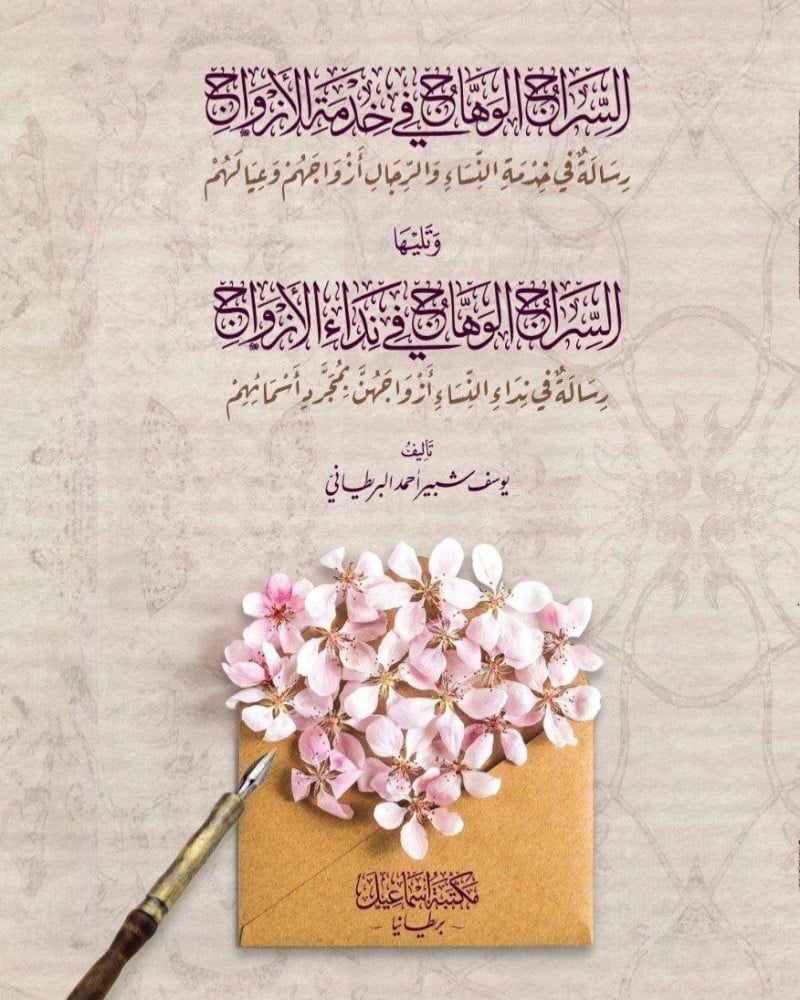 السِّرَاجُ الوَهَّاجُ فِي خِدْمَةِ الأَزْوَاجِ
رِسَالَةٌ فِي خِدْمَةِ النِّسَاءِ وَالرِّجَالِ أَزْوَاجَهُمْ وَعِيَالَهُمْ
وَتَلِيْهَا
السِّرَاجُ الوَهَّاجُ فِي نِدَاءِ الأَزْوَاجِ
رِسَالَةٌ فِي نِدَاءِ النِّسَاءِ أَزْوَاجَهُنَّ بِمُجَرَّدِ أَسْمَائِهِمْ
تَأْلِيفُ
يوسف شبير أحمد البريطاني
مَكْتَبَةُ إِسْمَاعِيل
بريطانيا